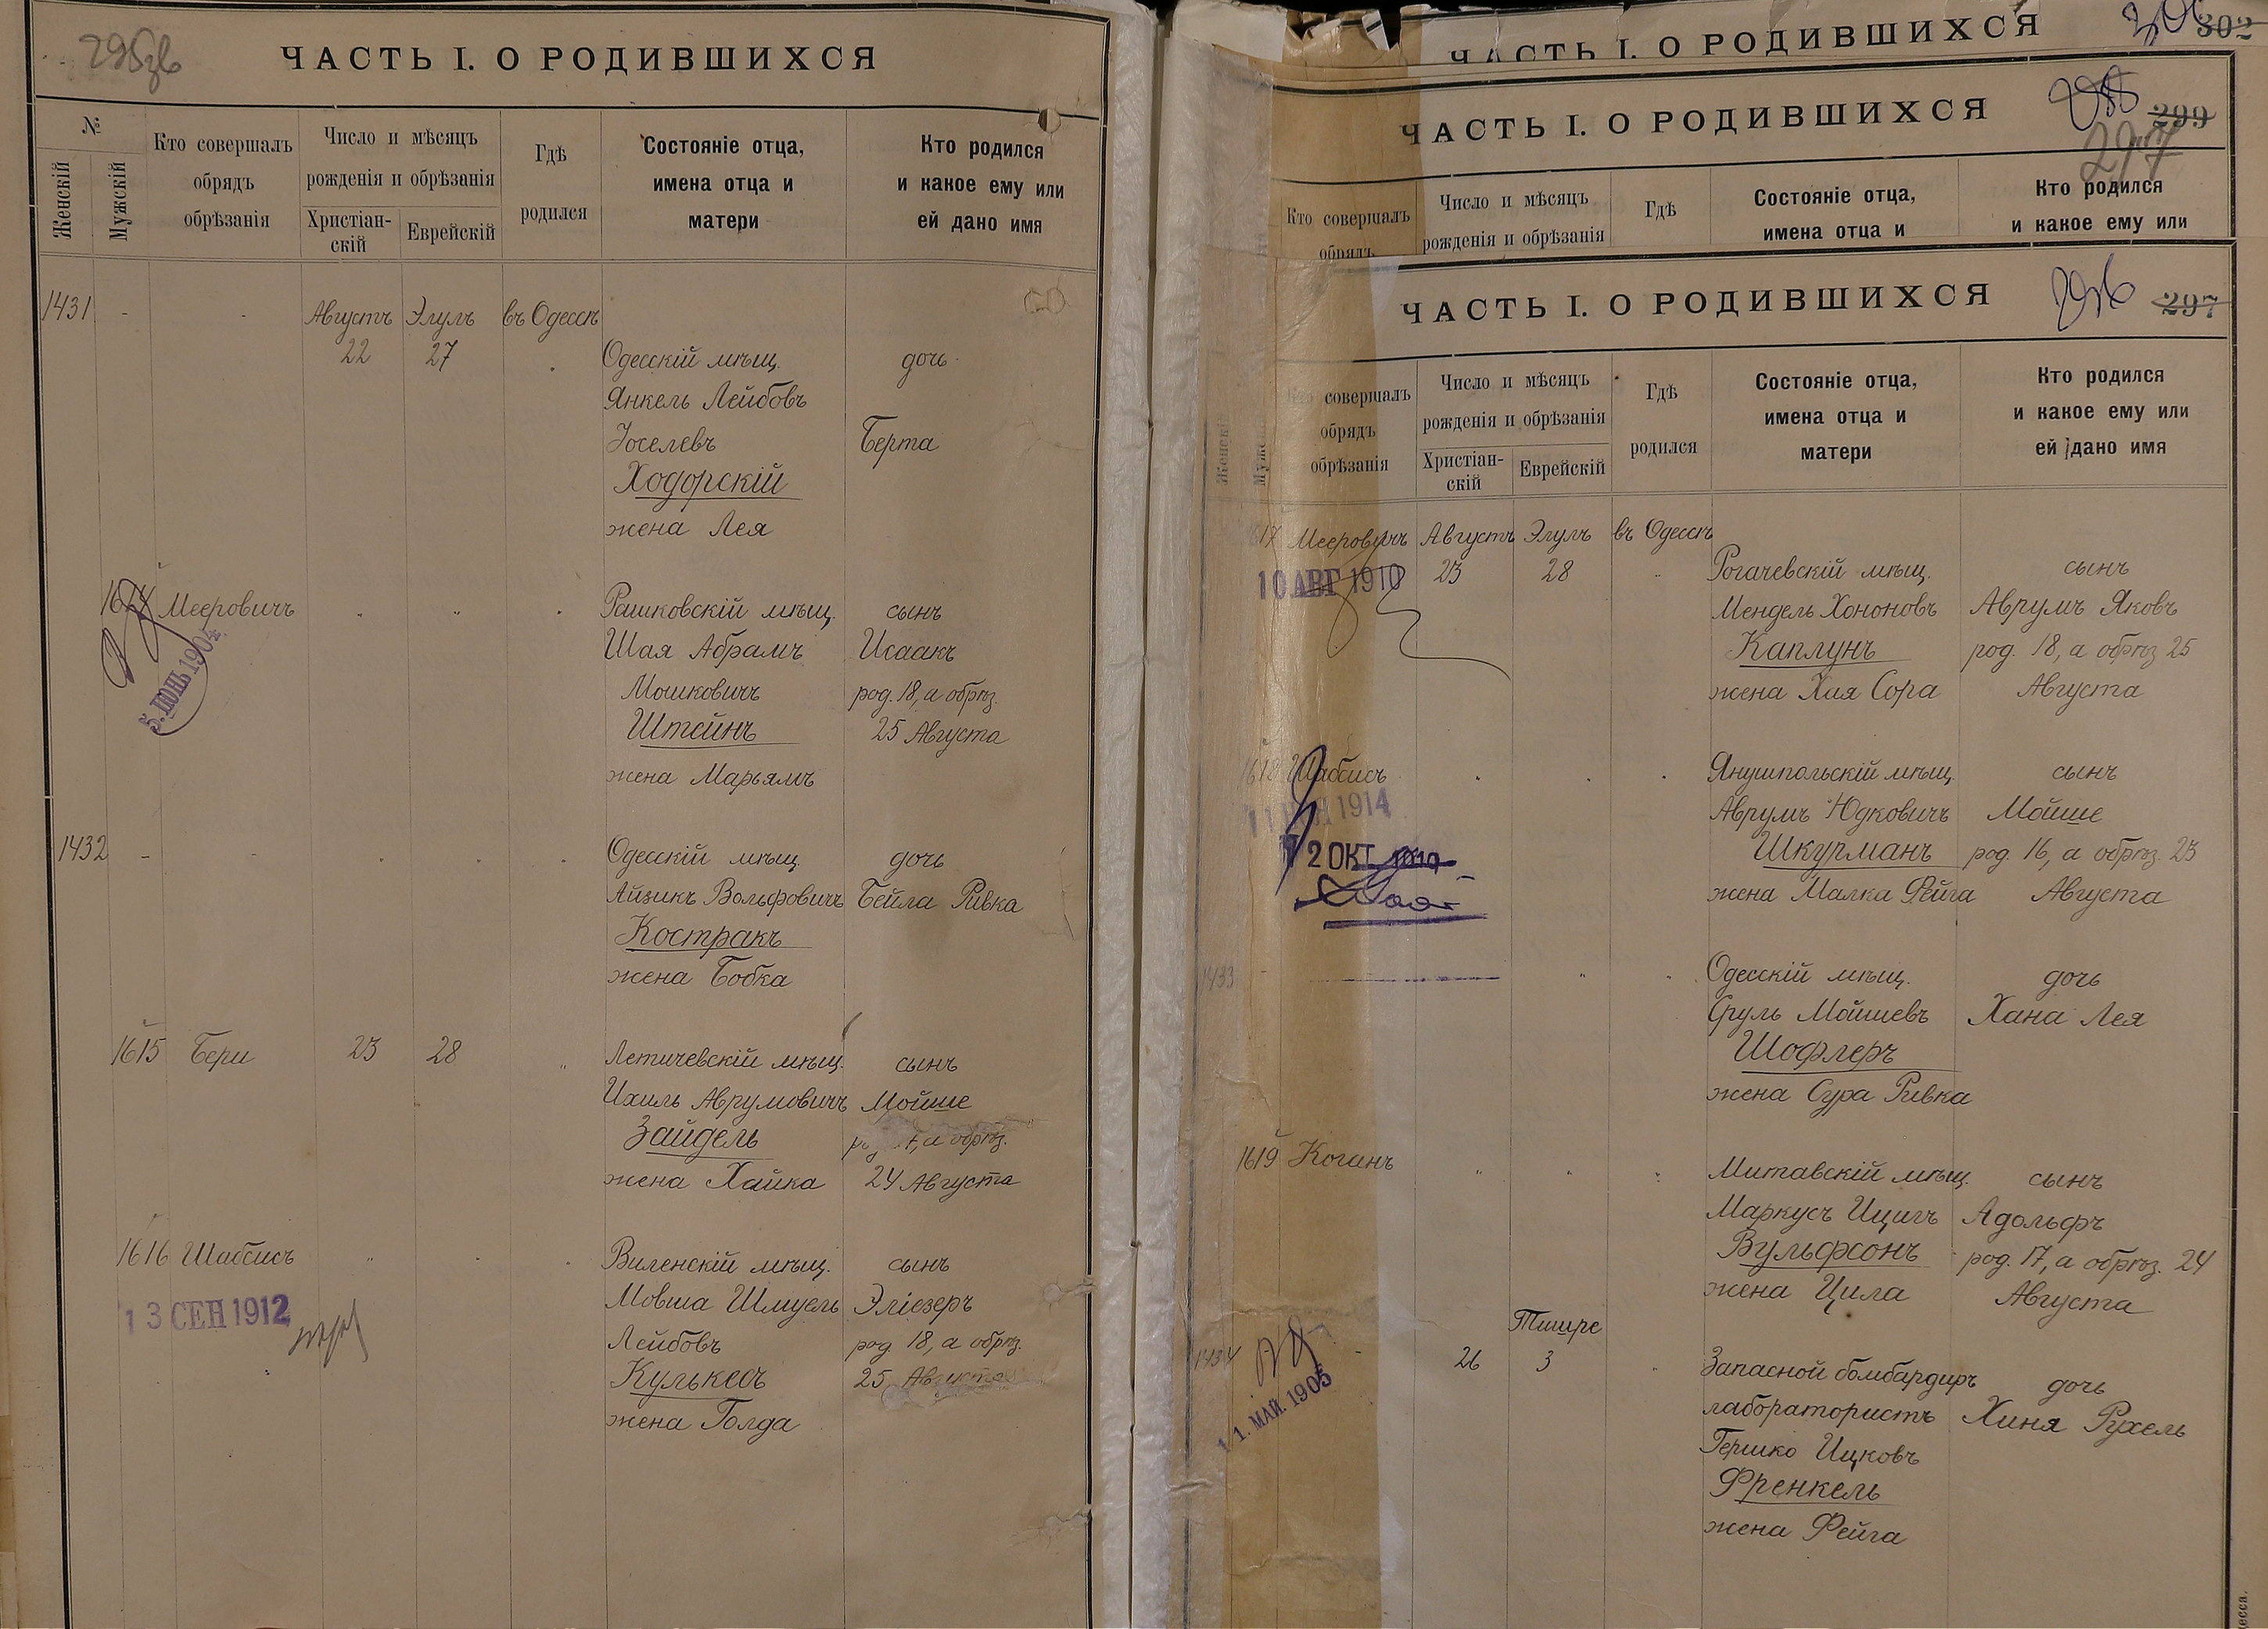 295об
ЧАСТЬ I. О РОДИВШИХСЯ
№
Женскій
Мужскій
Кто совершалъ
обрядъ
обрѣзанія
Число и мѣсяцъ
рожденія и обрѣзанія
Христіан-
скій
Еврейскій
Гдѣ
родился
Состояніе отца,
имена отца и
матери
Кто родился
и какое ему или
ей дано имя
1431 - - Августъ Элулъ въ Одессѣ
22 27 Одесскій мѣщ. дочь
Янкель Лейбовъ
Іоселевъ Берта
Ходорскій
жена Лея
1614 Мееровичъ " " " Рашковскій мѣщ. сынъ
5. ІЮНЬ 1904
Шая Абрамъ Исаакъ
Мошковичъ род. 18, а обрѣз.
Штейнъ 25 Августа
жена Марьямъ
1432 - - " " " Одесскій мѣщ. дочь
Айзикъ Вольфовичъ Бейла Ривка
Костракъ
жена Бобка
1615 Бери 23 28 " Летичевскій мѣщ. сынъ
Ихиль Аврумовичъ Мойше
Зайдель а обрѣз.
жена Хайка 24 Августа
1616 Шабсисъ " " " Виленскій мѣщ. сынъ
13 СЕН 1912
Мовша Шмуель Эліезеръ
Лейбовъ род. 18, а обрѣз.
Кулькесъ 25 Августа
жена Голда
ЧАСТЬ I. О РОДИВШИХСЯ
302
ЧАСТЬ I. О РОДИВШИХСЯ
299
297
Кто совершалъ
обрядъ
Число и мѣсяцъ
рожденія и обрѣзанія
Гдѣ
Состояніе отца,
имена отца и
Кто родился
и какое ему или
ЧАСТЬ I. О РОДИВШИХСЯ
296
297
Женскій
Кто совершалъ
обрядъ
обрѣзанія
Число и мѣсяцъ
рожденія и обрѣзанія
Христіан-
скій
Еврейскій
Гдѣ
родился
Состояніе отца,
имена отца и
матери
Кто родился
и какое ему или
ей дано имя
1617 Мееровичъ Августъ Элулъ въ Одессѣ
10 АВГ 1910 23 28 " Рогачевскій мѣщ. сынъ
Мендель Хононовъ Аврумъ Яковъ
Каплунъ род. 18, а обрѣз 25
жена Хая Сора Августа
1618 Шабсисъ " " " Янушпольскій мѣщ. сынъ
1914
2 ОКТ
Аврумъ Юдковичъ Мойше
Шкурманъ род. 16, а обрѣз. 23
жена Малка Фейга Августа
1433 - " " Одесскій мѣщ. дочь
Сруль Мойшевъ Хана Лея
Шофлеръ
жена Сура Ривка
1619 Коганъ " " " Митавскій мѣщ. сынъ
Маркусъ Ицигъ Адольфъ
Вульфсонъ род. 17, а обрѣз. 24
жена Цила Августа
Тишре
1434 - 26 3 " Запасной бомбардиръ дочь
11. МАЙ. 1905
лаборатористъ Хиня Рухель
Гершко Ицковъ
Френкель
жена Фейга